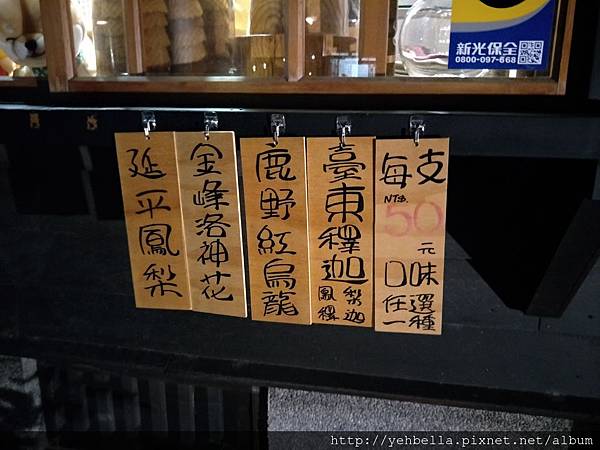 新光保全
0800-097-668
每支
NT$.
50
元
口味
任選
一種
臺東釋迦
鳳梨
釋迦
鹿野紅烏龍
金峰洛神花
延平鳳梨
http://yehbella.pixnet.net/album